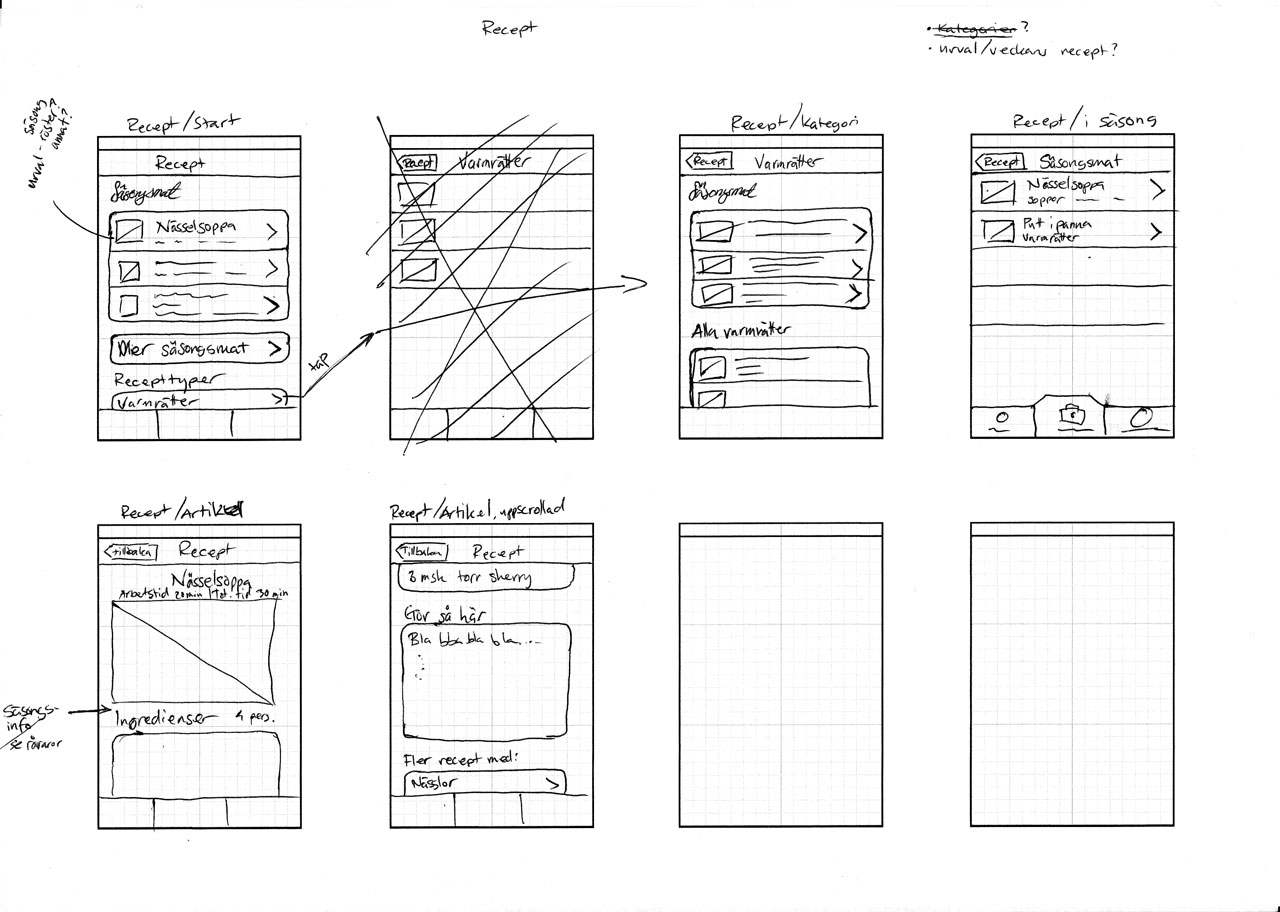 Recept
• Kategorier?
• urval/veckans recept?
säsong
urval - röster?
annat?
Recept/Start
Recept
Säsongsmat
Nässelsoppa
Mer säsongsmat
Recepttyper
Varmrätter
tap
Recept
Varmrätter
Recept/Kategori
Recept
Varmrätter
Säsongsmat
Alla varmrätter
Recept/i säsong
Recept
Säsongsmat
Nässelsoppa
Soppor
Putt i panna
Varmrätter
Recept/Artikel
Tillbaka
Recept
Nässelsoppa
Arbetstid 20 min | Tot. tid 30 min
Säsongs-
info
se råvaror
Ingredienser 4 pers.
Recept/Artikel, uppscrollad
Tillbaka
Recept
3 msk torr sherry
Gör så här
Bla bba bla bla...
Fler recept med:
Nässlor